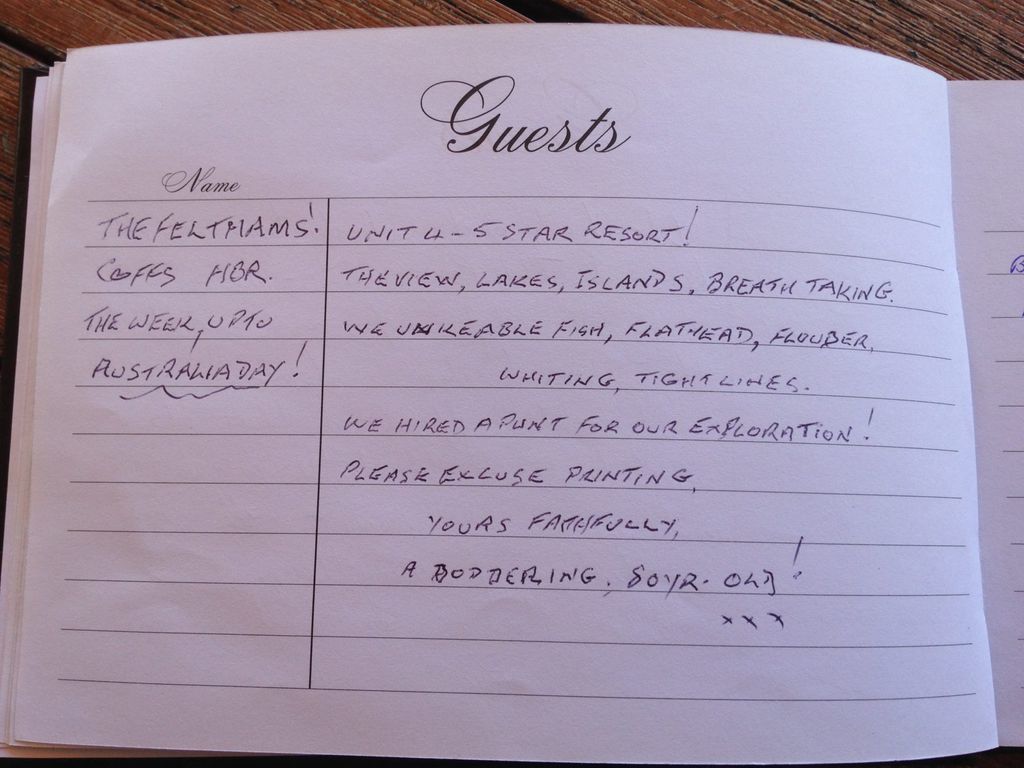 Guests
Name
THE FELTHAMS! UNIT 4 - 5 STAR RESORT!
COFFS HBR. THE VIEW, LAKES, ISLANDS, BREATH TAKING.
THE WEEK, UP TO WE UNREABLE FISH, FLATHEAD, FLOUDER,
AUSTRALIA DAY! WHITING, TIGHT LINES.
WE HIRED A PUNT FOR OUR EXPLORATION!
PLEASE EXCUSE PRINTING,
YOURS FATHFULLY,
A DODDERING, 80YR. OLD!
x x x